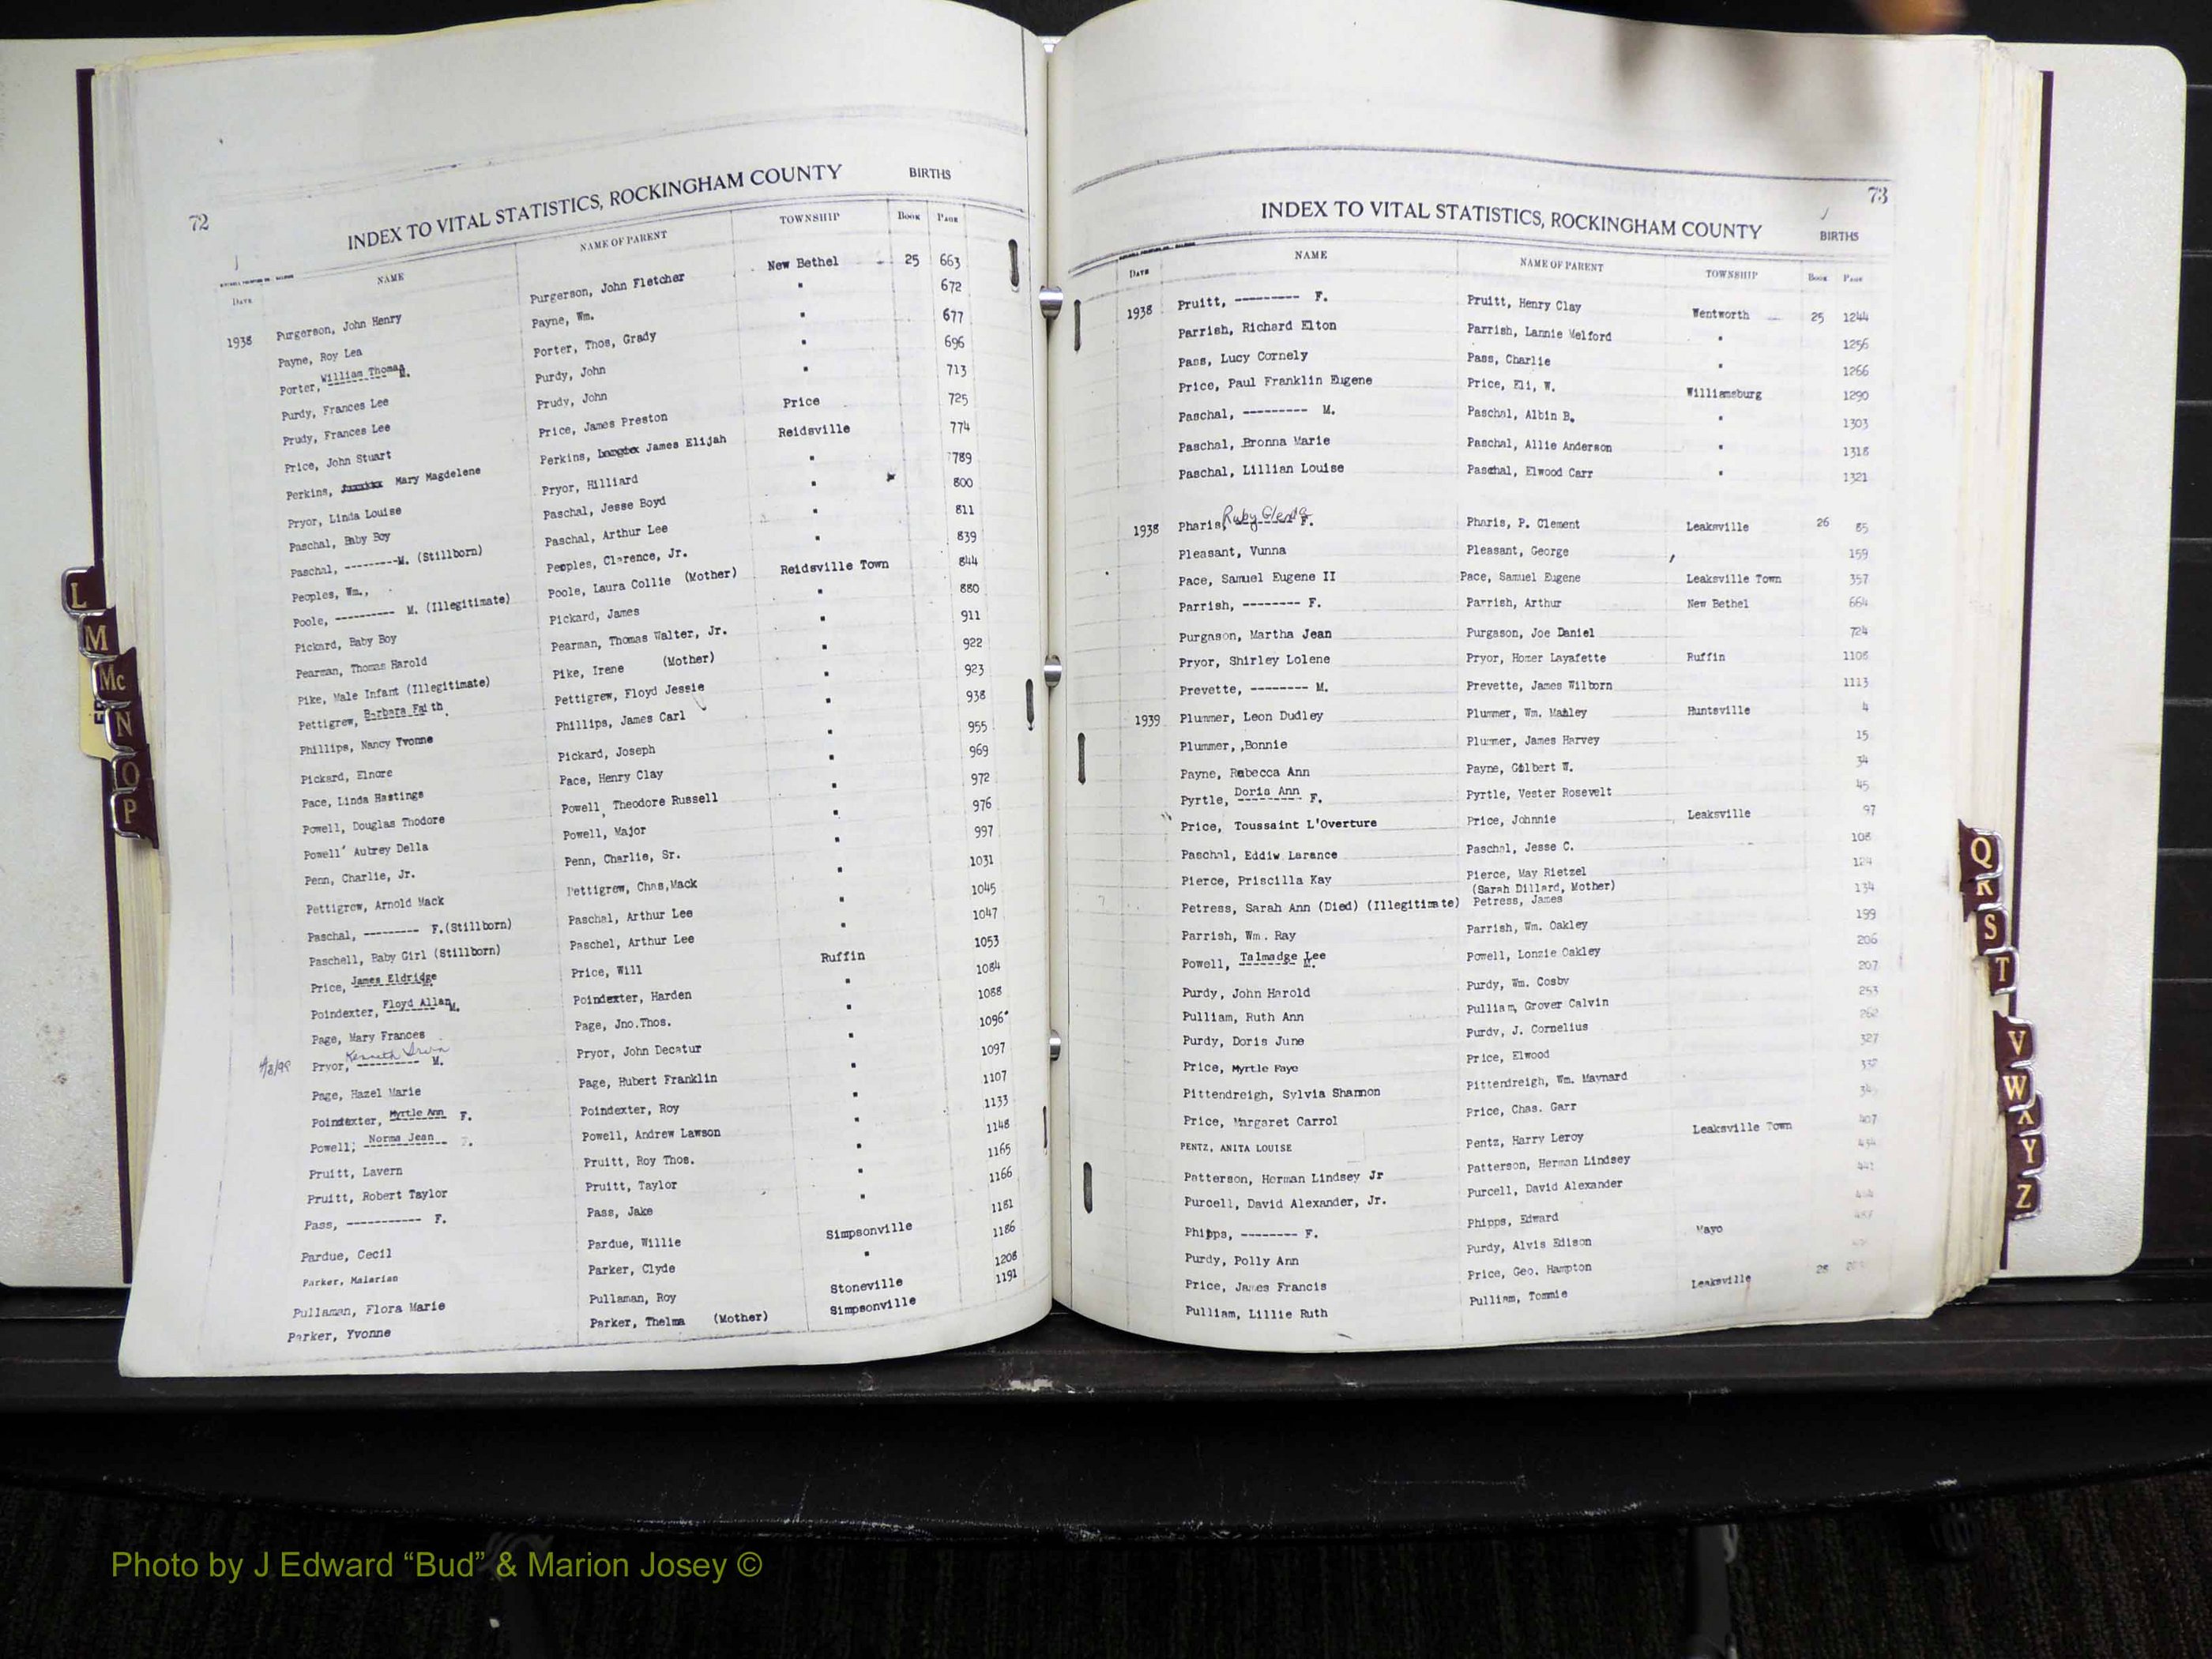 72
INDEX TO VITAL STATISTICS, ROCKINGHAM COUNTY BIRTHS
DATE NAME NAME OF PARENT TOWNSHIP BOOK PAGE
1938 Purgerson, John Henry Purgerson, John Fletcher New Bethel 25 663
Payne, Roy Lea Payne, Wm. " 672
Porter, William Thomas M. Porter, Thos, Grady " 677
Purdy, Frances Lee Purdy, John " 696
Prudy, Frances Lee Prudy, John " 713
Price, John Stuart Price, James Preston Price 725
Perkins, Mary Magdelene Perkins, James Elijah Reidsville 774
Pryor, Linda Louise Pryor, Hilliard " 789
Paschal, Baby Boy Paschal, Jesse Boyd " 800
Paschal, ---------M. (Stillborn) Paschal, Arthur Lee " 811
Peoples, Wm., Peoples, Clarence, Jr. " 839
Poole, --------- M. (Illegitimate) Poole, Laura Collie (Mother) Reidsville Town 844
Pickard, Baby Boy Pickard, James " 880
Pearman, Thomas Harold Pearman, Thomas Walter, Jr. " 911
Pike, Male Infant (Illegitimate) Pike, Irene (Mother) " 922
Pettigrew, Barbara Faith Pettigrew, Floyd Jessie " 923
Phillips, Nancy Yvonne Phillips, James Carl " 938
Pickard, Elnore Pickard, Joseph " 955
Pace, Linda Hastings Pace, Henry Clay " 969
Powell, Douglas Thodore Powell, Theodore Russell " 972
Powell' Autrey Della Powell, Major " 976
Penn, Charlie, Jr. Penn, Charlie, Sr. " 997
Pettigrew, Arnold Mack Pettigrew, Chas,Mack " 1031
Paschal, --------- F.(Stillborn) Paschal, Arthur Lee " 1045
Paschell, Baby Girl (Stillborn) Paschel, Arthur Lee " 1047
Price, James Eldridge Price, Will Ruffin 1053
Poindexter, Floyd Allan M. Poindexter, Harden " 1084
Page, Mary Frances Page, Jno.Thos. " 1088
Pryor, M. Pryor, John Decatur " 1096
Page, Hazel Marie Page, Hubert Franklin " 1097
Poindexter, Myrtle Ann F. Poindexter, Roy " 1107
Powell; Norma Jean F. Powell, Andrew Lawson " 1133
Pruitt, Lavern Pruitt, Roy Thos. " 1148
Pruitt, Robert Taylor Pruitt, Taylor " 1165
Pass, ----------- F. Pass, Jake " 1166
Pardue, Cecil Pardue, Willie Simpsonville 1181
Parker, Malarian Parker, Clyde " 1186
Pullaman, Flora Marie Pullaman, Roy Stoneville 1208
Parker, Yvonne Parker, Thelma (Mother) Simpsonville 1191
73
INDEX TO VITAL STATISTICS, ROCKINGHAM COUNTY BIRTHS
DATE NAME NAME OF PARENT TOWNSHIP BOOK PAGE
1938 Pruitt, --------- F. Pruitt, Henry Clay Wentworth 25 1244
Parrish, Richard Elton Parrish, Lannie Melford " 1256
Pass, Lucy Cornely Pass, Charlie " 1266
Price, Paul Franklin Eugene Price, Eli, W. Williamsburg 1290
Paschal, --------- M. Paschal, Albin B. " 1303
Paschal, Bronna Marie Paschal, Allie Anderson " 1318
Paschal, Lillian Louise Paschal, Elwood Carr " 1321
1938 Pharis, Ruby Glenda F. Pharis, P. Clement Leaksville 26 85
Pleasant, Vunna Pleasant, George 159
Pace, Samuel Eugene II Pace, Samuel Eugene Leaksville Town 357
Parrish, -------- F. Parrish, Arthur New Bethel 664
Purgason, Martha Jean Purgason, Joe Daniel 724
Pryor, Shirley Lolene Pryor, Homer Layafette Ruffin 1108
Prevette, -------- M. Prevette, James Wilborn 1113
1939 Plummer, Leon Dudley Plummer, Wm. Manley Huntsville 4
Plummer, ,Bonnie Plummer, James Harvey 15
Payne, Rebecca Ann Payne, Gilbert W. 34
Pyrtle, Doris Ann F. Pyrtle, Vester Rosevelt 45
Price, Toussaint L'Overture Price, Johnnie Leaksville 97
Paschal, Eddiw Larance Paschal, Jesse C. 108
Pierce, Priscilla Kay Pierce, May Rietzel 124
(Sarah Dillard, Mother)
Petress, Sarah Ann (Died) (Illegitimate) Petress, James 134
Parrish, Wm. Ray Parrish, Wm. Oakley 199
Powell, Talmadge Lee M. Powell, Lonzie Oakley 206
Purdy, John Harold Purdy, Wm. Cosby 207
Pulliam, Ruth Ann Pulliam, Grover Calvin 253
Purdy, Doris June Purdy, J. Cornelius 262
Price, Myrtle Faye Price, Elwood 327
Pittendreigh, Sylvia Shannon Pittendreigh, Wm. Maynard
Price, Margaret Carrol Price, Chas. Garr
PENTZ, ANITA LOUISE Pentz, Harry Leroy Leaksville Town 407
Patterson, Herman Lindsey Jr Patterson, Herman Lindsey
Purcell, David Alexander, Jr. Purcell, David Alexander 441
Phipps, -------- F. Phipps, Edward
Purdy, Polly Ann Purdy, Alvis Edison Mayo
Price, James Francis Price, Geo. Hampton
Pulliam, Lillie Ruth Pulliam, Tommie Leaksville
L
M
Mc
N
O
P
Q
R
S
T
V
W
X
Y
Z
Photo by J Edward “Bud” & Marion Josey ©